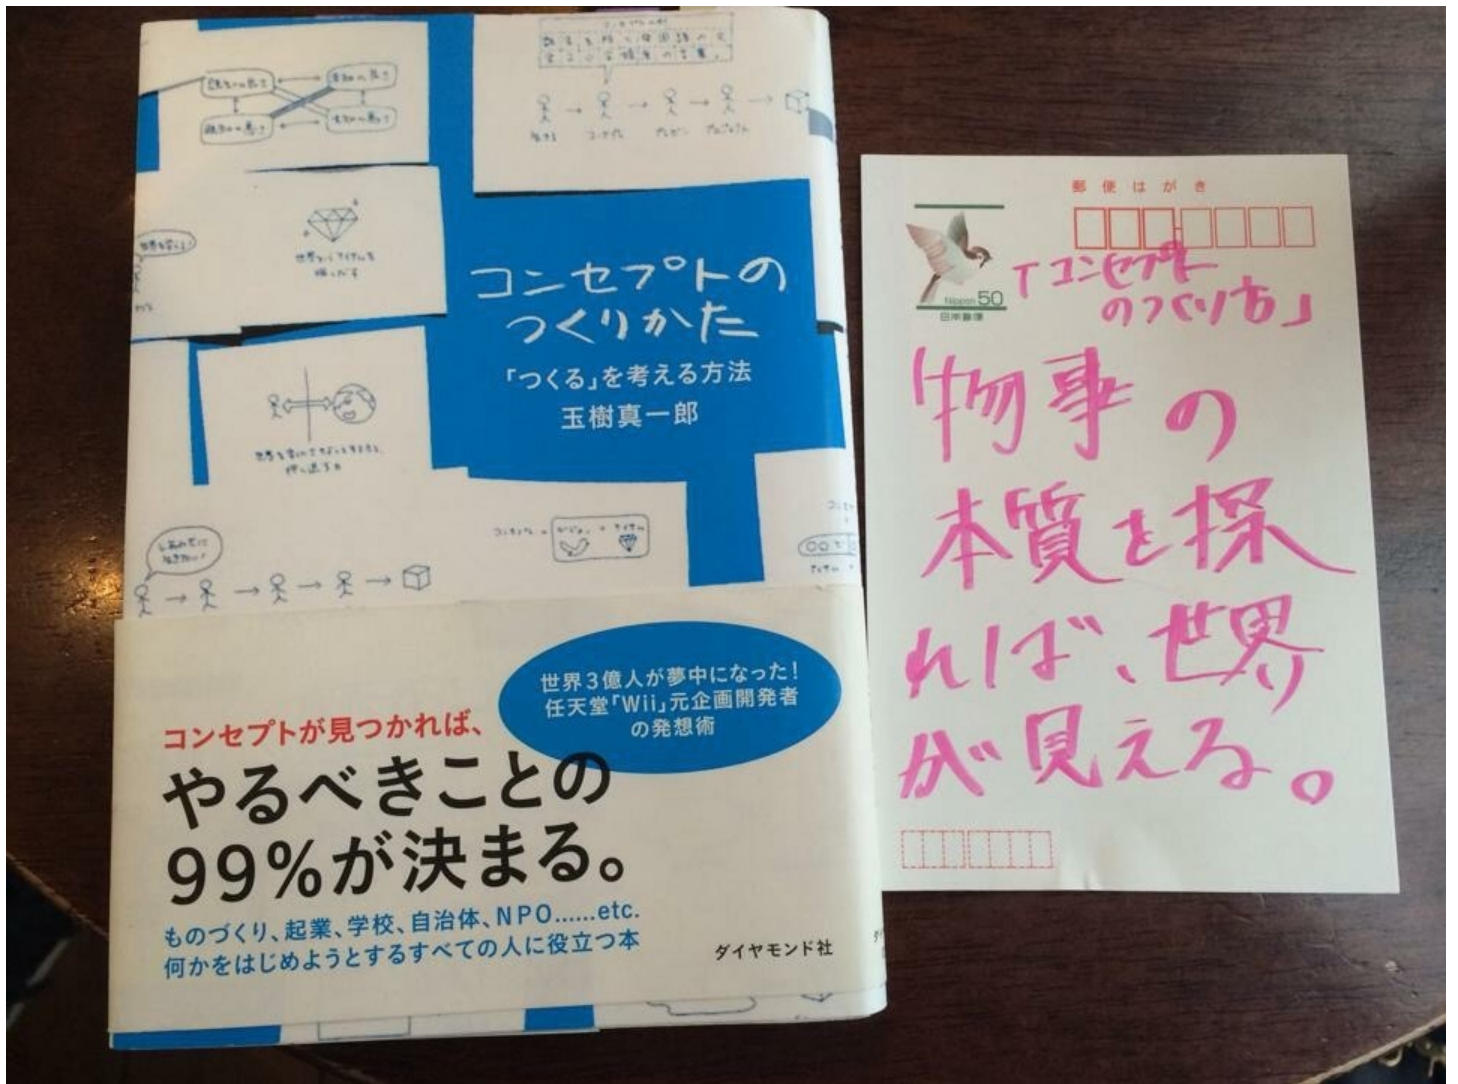 世界というアイテムを
コンセプトの
つくりかた
「つくる」を考える方法
玉樹真一郎
世界3億人が夢中になった!
任天堂「Wii」元企画開発者
の発想術
コンセプトが見つかれば、
やるべきことの
99%が決まる。
ものづくり、起業、学校、自治体、NPO......etc.
何かをはじめようとするすべての人に役立つ本
ダイヤモンド社
郵便はがき
Nippon 50
日本郵便
「コンセプト
のつくり方」
「物事の
本質を探
れば、世界
が見える。